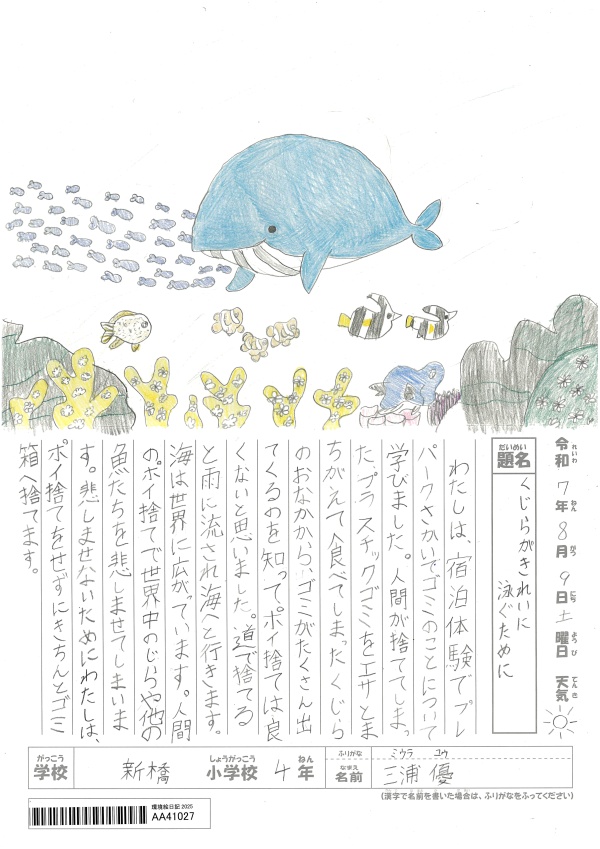 令和7年8月9日土曜日 天気
れいわ ねん がつ にち ようび てんき
だいめい
題名
くじらがきれいに
泳ぐために
わたしは、宿泊体験でプレ
パークさかいでゴミのことについて
学びました。人間が捨ててしまっ
たプラスチックゴミをエサとま
ちがえて食べてしまったくじら
のおなかから、ゴミがたくさん出
てくるのを知って、ポイ捨ては良
くないと思いました。道で捨てる
と雨に流され海へと行きます。
海は世界に広がっています。人間
のポイ捨てで世界中のくじらや他の
魚たちを悲しませてしまいま
す。悲しませないためにわたしは、
ポイ捨てをせずにきちんとゴミ
箱へ捨てます。
がっこう しょうがっこう ねん
学校 新橋 小学校 4年
ふりがな ミウラ ユウ
なまえ
名前 三浦 優
(漢字で名前を書いた場合は、ふりがなをふってください)
環境絵日記 2025
AA41027